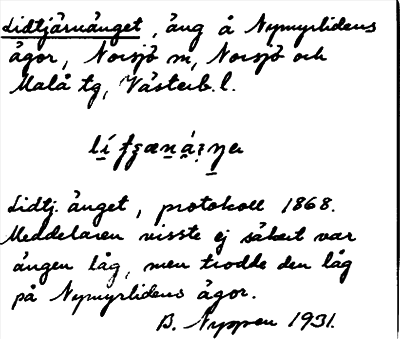 Lidtjärnänget, äng å Nymyrlidens
ägor, Norsjö sn, Norsjö och
Malå tg, Västerb. l.
Lidtj. änget, protokoll 1868.
Meddelaren visste ej säkert var
ängen låg, men trodde den låg
på Nymyrlidens ägor.
B. Nyppen 1931.